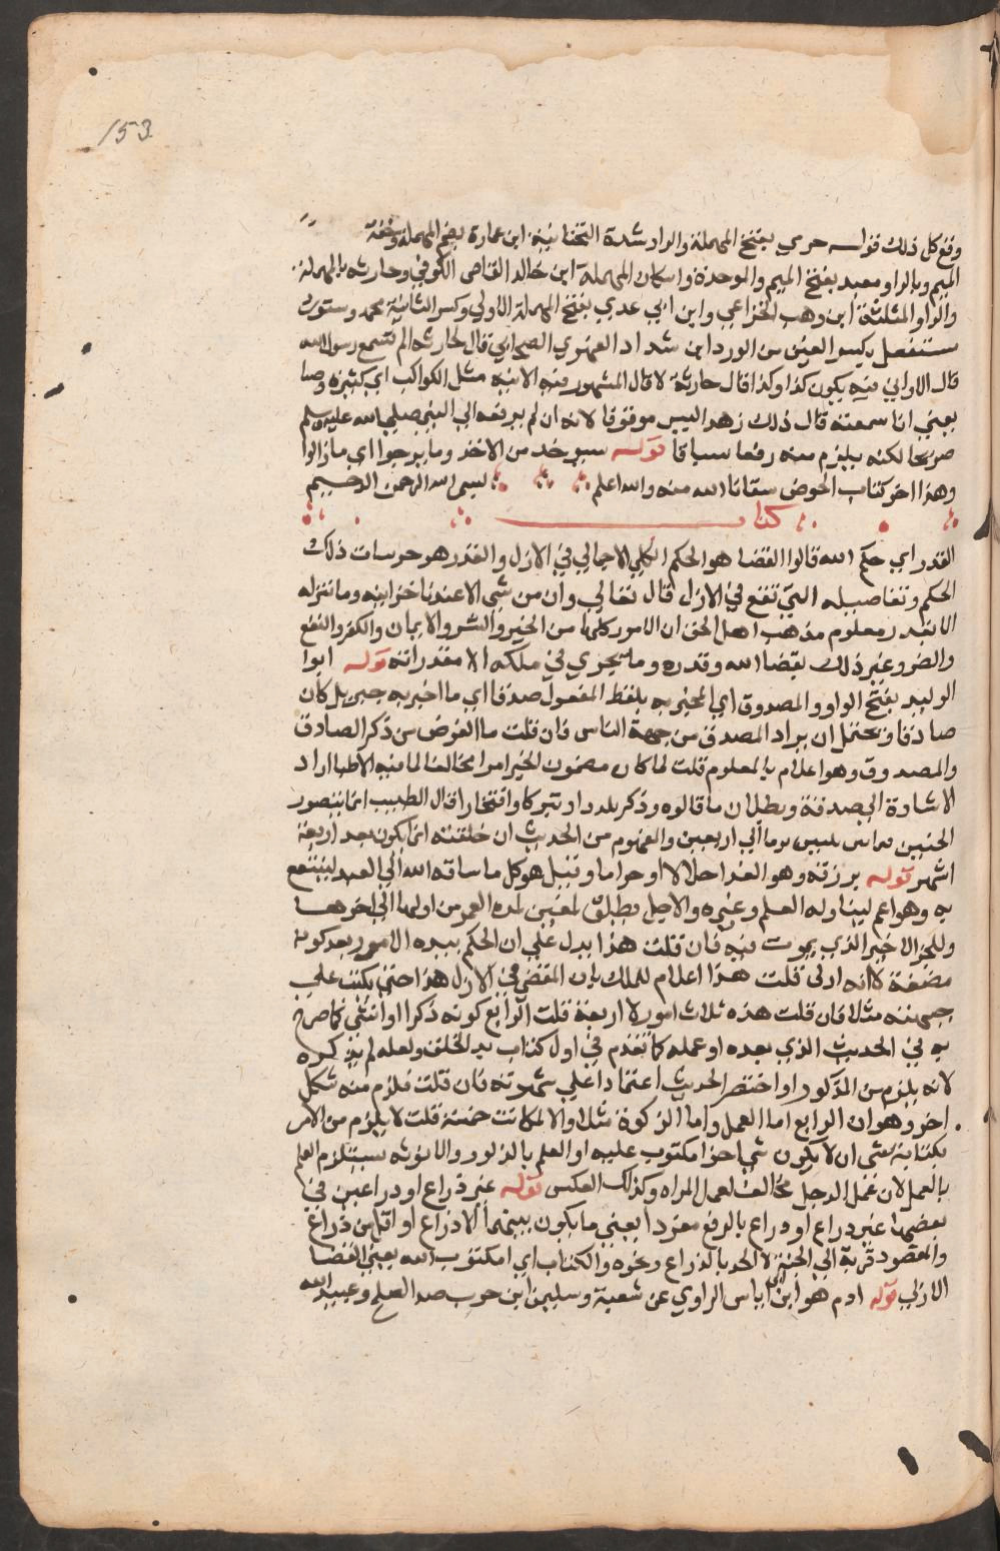 153
وقع كل ذلك قوله حرمي بفتح المهملة والراء وشدة التحتانية ابن عمارة بضم المهملة وخفة
الميم وبالراء ومعبد بفتح الميم والموحدة واسكان المهملة ابن خالد القاص الكوفي وحارثه بالمهملة
والراو المثلثة ابن وهب الخزاعي وابن ابي عدي بفتح المهملة الاولي وكسر الثانية محمد ومستورد
مستفعل بكسر العين من الورد ابن شداد الفهري الصحابي قال لحارثه الم تسمع رسول الله
قال الاواني فيه يكون كذا وكذا قال حارثة لا قال المشهور فيه الانيه مثل الكواكب اي كثيرة وضيا
يعني انا سمعته قال ذلك زهد اليس موقوفا لانه ان لم يرفعه الي النبي صلي الله عليه وسلم
صريحا لكنه يلزم منه رفعا سياقا قوله سيوخذ من الاخذ وما برحوا اي ما زالوا
وهذا اخر كتاب الحوض سقانا الله منه والله اعلم بسم الله الرحمن الرحيم
كتاب
القدر اي حكم الله قالوا القضا هو الحكم الكلي الاجمالي في الازل والقدر هو جزييات ذلك
الحكم وتفاصيله التي تقع في الازل قال تعالي وان من شي الا عندنا خزاينه وما ننزله
الا بقدر معلوم مذهب اهل الحق ان الامور كلها من الخير والشر والايمان والكفر والنفع
والضر وغير ذلك بقضا الله وقدره وما يجري في ملكه الا مقدراته قوله ابوا
الوليد بفتح الواو والمصدوق اي المخبر به بلفظ المفعول صدقا اي ما اخبر به جبريل كان
صادقا ويحتمل ان يراد المصدق من جهة الناس فان قلت ما الغرض من ذكر الصادق
والمصدوق وهو اعلام بالمعلوم قلت لما كان مضمون الخبر امرا مخالفا لما فيه الاطبا اراد
الاشارة الي صدقه وبطلان ما قالوه وذكر تلذذا وتبركا وافتخارا قال الطبيب انما يتصور
الجنين فيما بين ثلثين يوما الي اربعين والمفهوم من الحديث ان خلقته انما يكون بعد اربعة
اشهر قوله برزقه وهو الغذا حلالا او حراما وقيل هو كل ما ساقه الله الي العبد لينتفع
به وهو اعم ليتناوله العلم وغيره والاجل يطلق لمعنيين لمدة العمر من اولها الي اخرها
وللجز الاخير الذي يموت فيه فان قلت هذا يدل علي ان الحكم بهذه الامور بعد كونه
مضغة لا انه ازلي قلت هذا اعلام للملك بان المقضي في الازل هذا حتي يكتب علي
جبهته مثلا فان قلت هذه ثلاث امور لا اربعة قلت الرابع كونه ذكرا او انثي كما صرح
به في الحديث الذي بعده او عمله كما تقدم في اول كتاب بدء الخلق ولعله لم يذكره
لانه يلزم من المذكور او اختصر الحديث اعتمادا علي شهرته فان قلت فلزم منه شكل
اخر وهو ان الرابع اما العمل واما الذكورة مثلا والا لكانت خمسة قلت لا يلزم من الامر
بكتابة شي ان لا يكون شي اخر مكتوب عليه او العلم بالذكورة والانوثه يستلزم العلم
بالعمل لان عمل الرجل مخالف لعمل المراه وكذلك العكس قوله غير ذراع او ذراعين في
بعضها غير ذراع او ذراع بالرفع مفردا يعني ما يكون بينهما الا ذراع او اقل من ذراع
والمقصود قربه الي الجنة لا الحد بالذراع ونحوه والكتاب اي مكتوب الله يعني القضا
الازلي قوله ادم هو ابن ابي اياس الراوي عن شعبة وسليمن ابن حرب ضد الصلح وعبيد الله